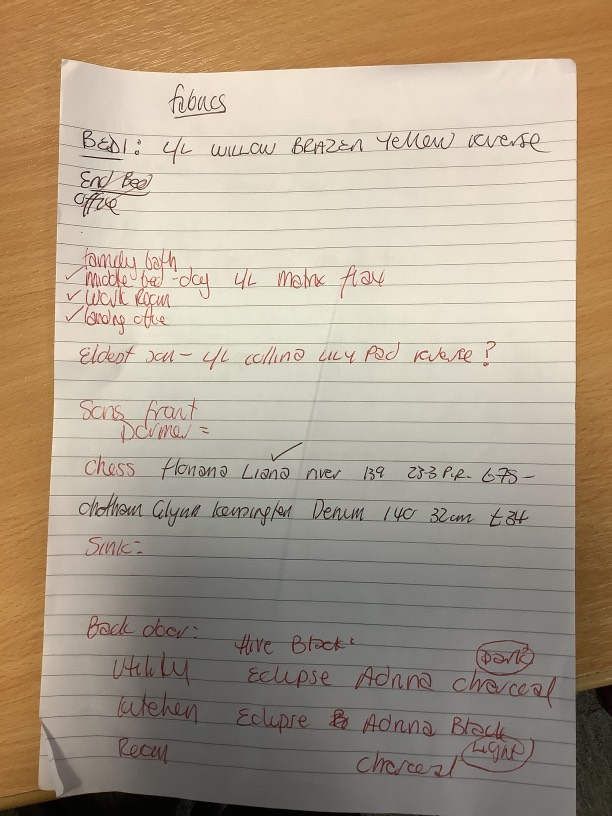 fabrics
BED1: 4/L WILLOW BRAZEN Yellow reverse
End Bed
office
family bath
✓ middle bed-day 4/L matrix flax
✓ Work Room
✓ landing office
Eldest son - 4/L collina LILY Pad reverse?
Sons front
Dormer =
✓
chess Liana river 139 23.3 P.R.
chatham Glynn kensington Denim 140 32cm £34
Sink:
Back door:
Hive Black:
Dark
Utility Eclipse Adnna charcoal
kitchen Eclipse Adnna Black
Light
Room charcoal